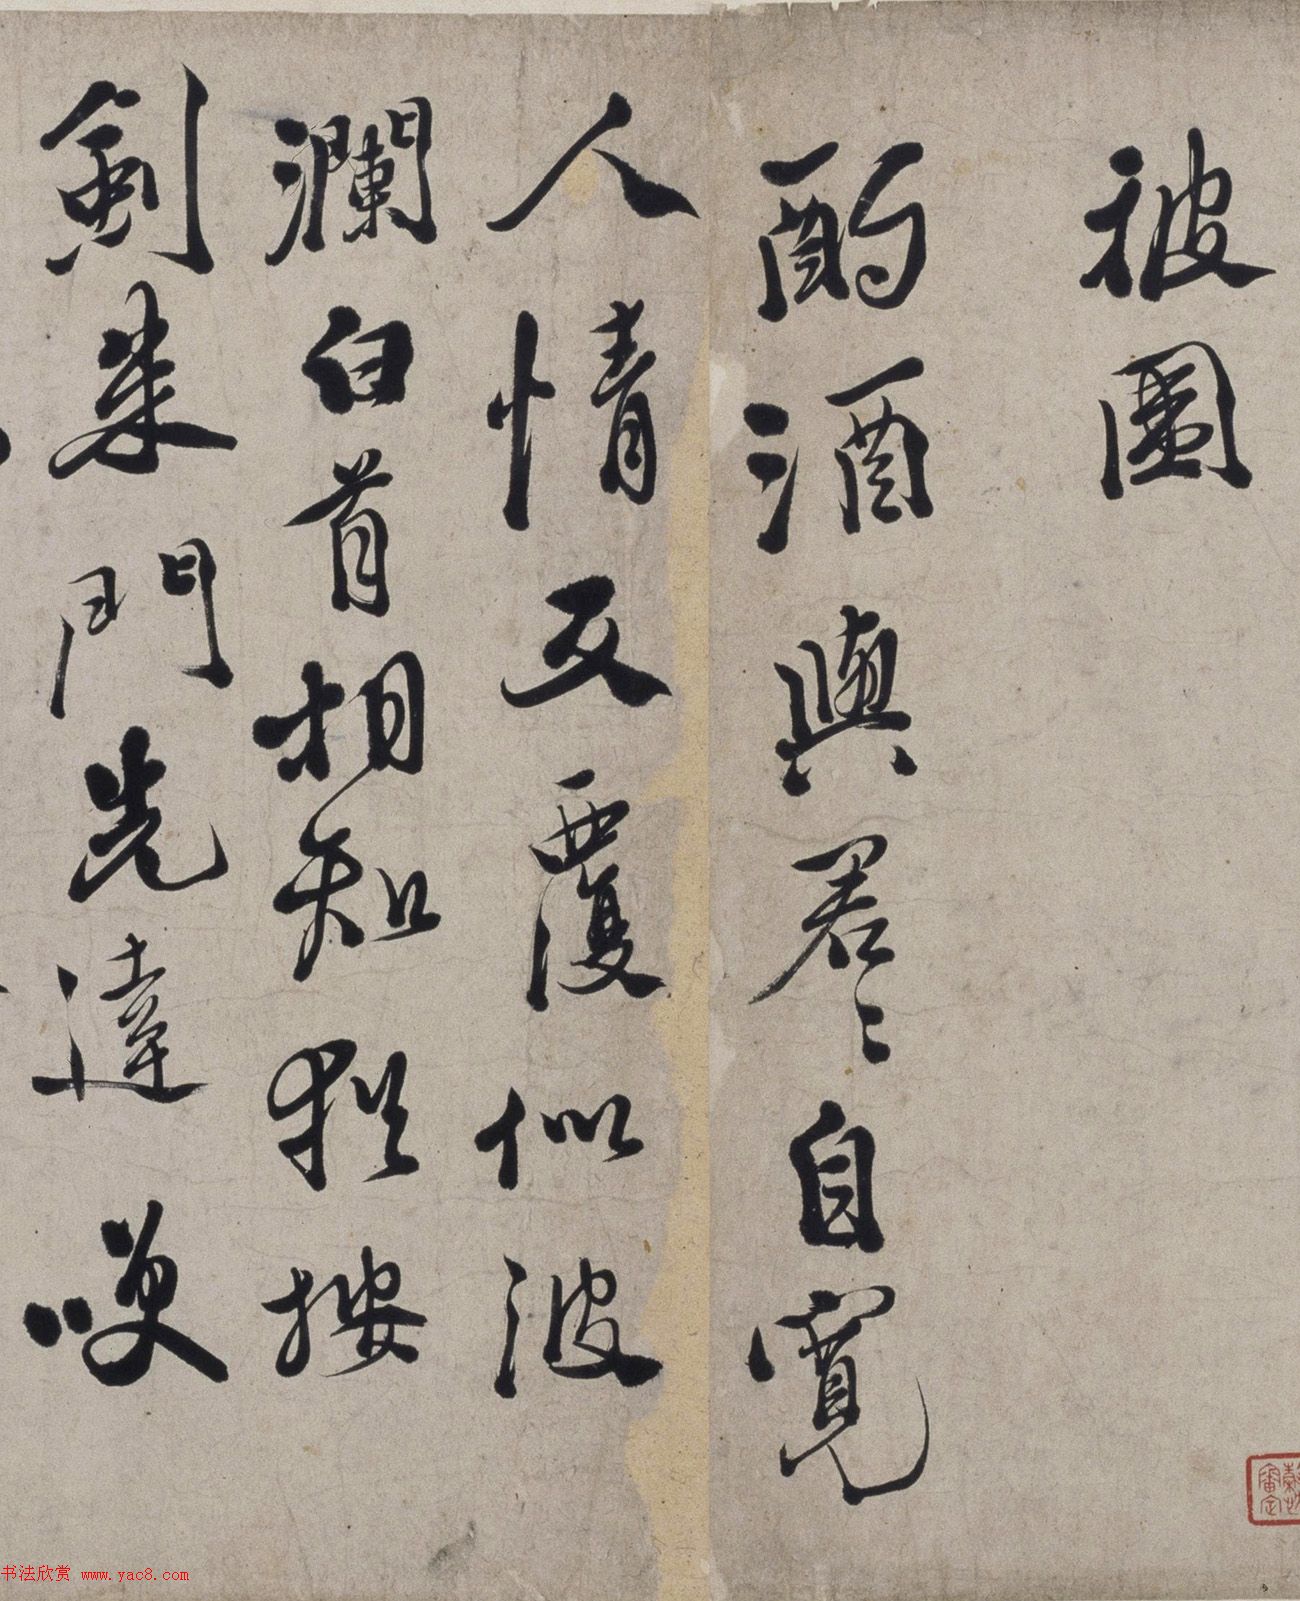 被圖
酌酒與君〻自寬
人情反覆似波
瀾白首相知猶按
劍朱門先達咲
书法欣赏 www.yac8.com